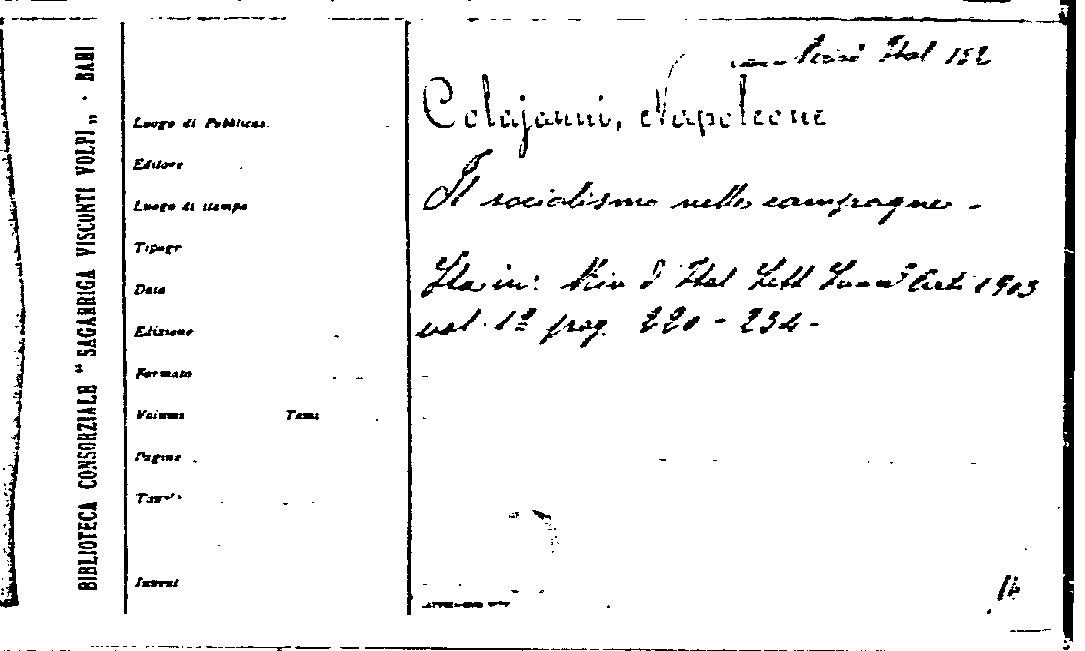 BIBLIOTECA CONSORZIALE "SAGARRIGA VISCONTI VOLPI„ - BARI
Ital 152
Colajanni, Napoleone
Il socialismo nelle campagne -
Sta in: Riv d' Ital Lett Scien Arti 1903
vol. 1º pag. 220 - 234 -
Luogo di Pubblicaz.
Editore
Luogo di stampa
Tipogr
Data
Edizione
Formato
Volume Tomi
Pagine
Tavole
Invent